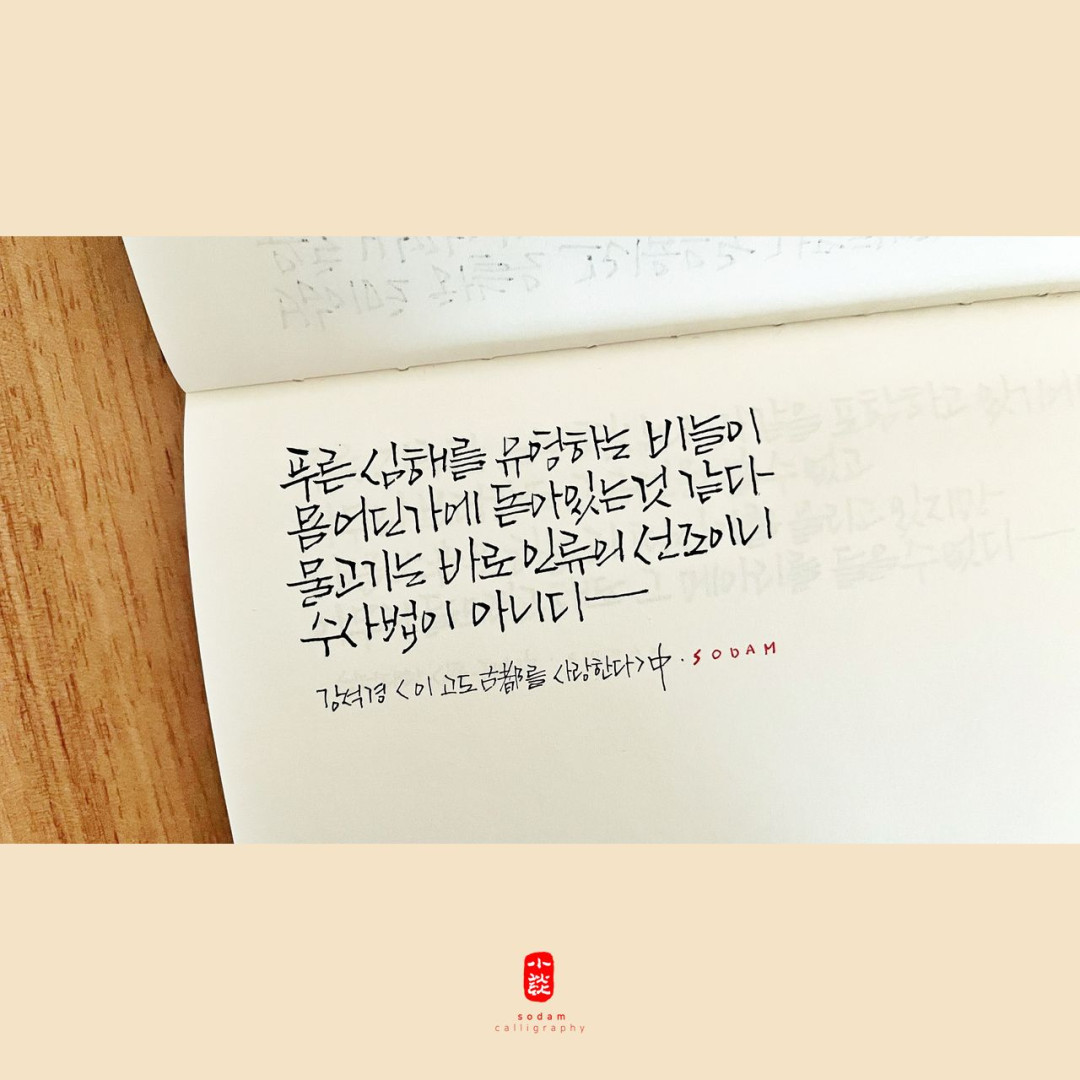 푸른 심해를 유영하는 비늘이
몸 어딘가에 돋아있는것 같다
물고기는 바로 인류의 선조이니
수사법이 아니다—
강석경 <이 고도古都를 사랑한다>中 · SODAM
小談
sodam
calligraphy